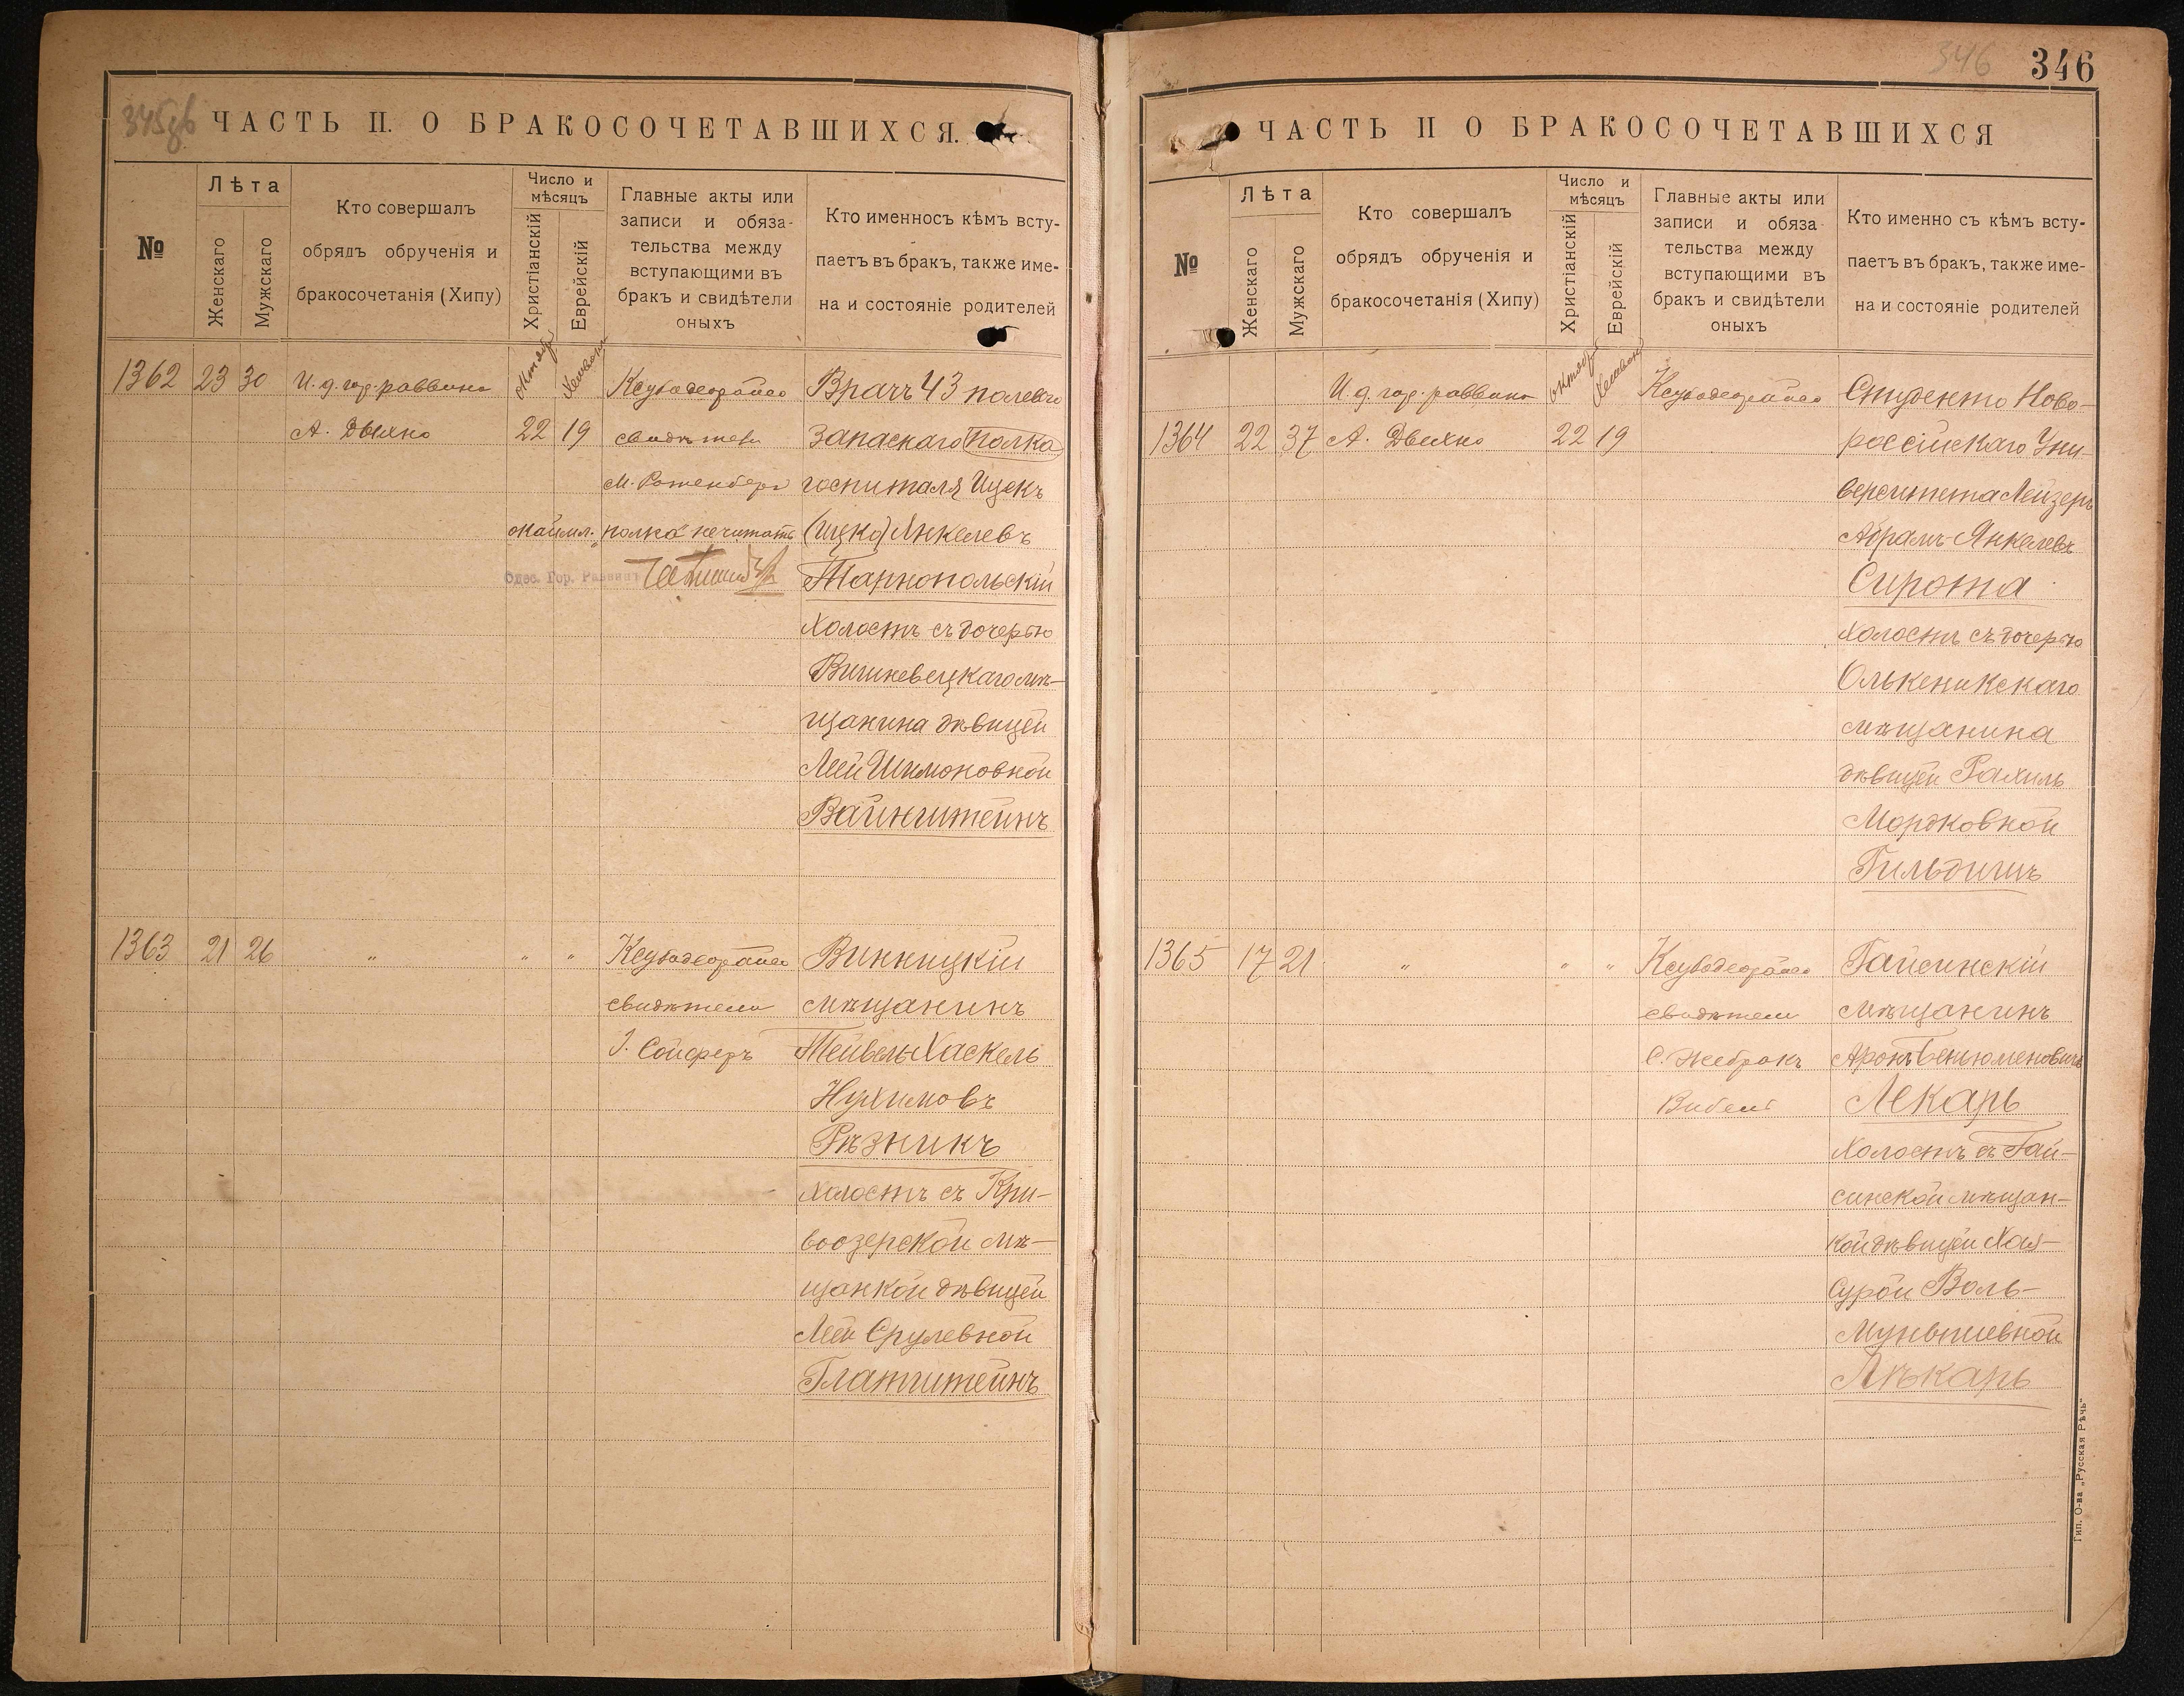 345
ЧАСТЬ II. О БРАКОСОЧЕТАВШИХСЯ.
№
Лѣта
Женскаго
Мужскаго
Кто совершалъ
обрядъ обрученія и
бракосочетанія (Хипу)
Число и
мѣсяцъ
Христіанскій
Еврейскій
Главные акты или
записи и обяза-
тельства между
вступающими въ
бракъ и свидѣтели
оныхъ
Кто именносъ кѣмъ всту-
паетъ въ бракъ, также име-
на и состояніе родителей
1362 23 30 И. д. гор. раввина
А. Двихно
22 19
свидѣтели
М. Ротенберг
Врачъ 43 полевого
запаснаго полка
госпиталя Ицекъ
(Ицко) Янкелевъ
Тарнопольскій
холостъ съ дочерью
Вишневецкаго мѣ-
щанина дѣвицей
Леей Шимоновной
Вайнштейнъ
„полка" не читать
Одес. Гор. Раввинъ
1363 21 26 „ „ „
свидѣтели
І. Сойферъ
Винницкій
мѣщанинъ
Тейвель-Хаскель
Нухимовъ
Рѣзникъ
холостъ съ Кри-
воозерской мѣ-
щанкой дѣвицей
Леей Срулевной
Глатштейнъ
346
346
ЧАСТЬ II О БРАКОСОЧЕТАВШИХСЯ
№
Лѣта
Женскаго
Мужскаго
Кто совершалъ
обрядъ обрученія и
бракосочетанія (Хипу)
Число и
мѣсяцъ
Христіанскій
Еврейскій
Главные акты или
записи и обяза
тельства между
вступающими въ
бракъ и свидѣтели
оныхъ
Кто именно съ кѣмъ всту-
паетъ въ бракъ, также име-
на и состояніе родителей
И. д. гор. раввина
1364 22 37 А. Двихно 22 19
Студентъ Ново-
россійскаго Уни-
верситета Лейзеръ
Абрамъ Янкелевъ
Сирота
холостъ съ дочерью
Олькеникскаго
мѣщанина
дѣвицей Рахиль
Мордковной
Гильдинъ
1365 17 21 „ „ „
свидѣтели
С. Жебракъ
Гайсинскій
мѣщанинъ
Аронъ Беньюменовичъ
Лекарь
холостъ съ Гай-
синской мѣщан-
кой дѣвицей Хая-
Сурой Воль-
Мунышевной
Лѣкарь
Тип. О-ва „Русская Рѣчь"